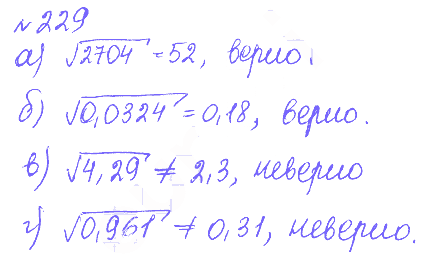 №229
а) √2704 = 52, верно.
б) √0,0324 = 0,18, верно.
в) √4,29 ≠ 2,3, неверно
г) √0,961 ≠ 0,31, неверно.